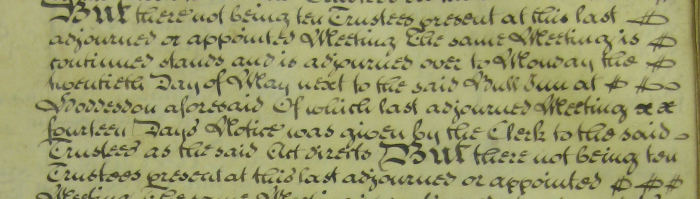 But there not being ten Trustees present at this last
adjourned or appointed Meeting The same Meeting is
continued stands and is adjourned over to Monday the
twentieth Day of May next to the said Bull Inn at
Hoddesdon aforesaid Of which last adjourned Meeting
fourteen Days Notice was given by the Clerk to the said
Trustees as the said Act directs But there not being ten
Trustees present at this last adjourned or appointed
Meeting The same